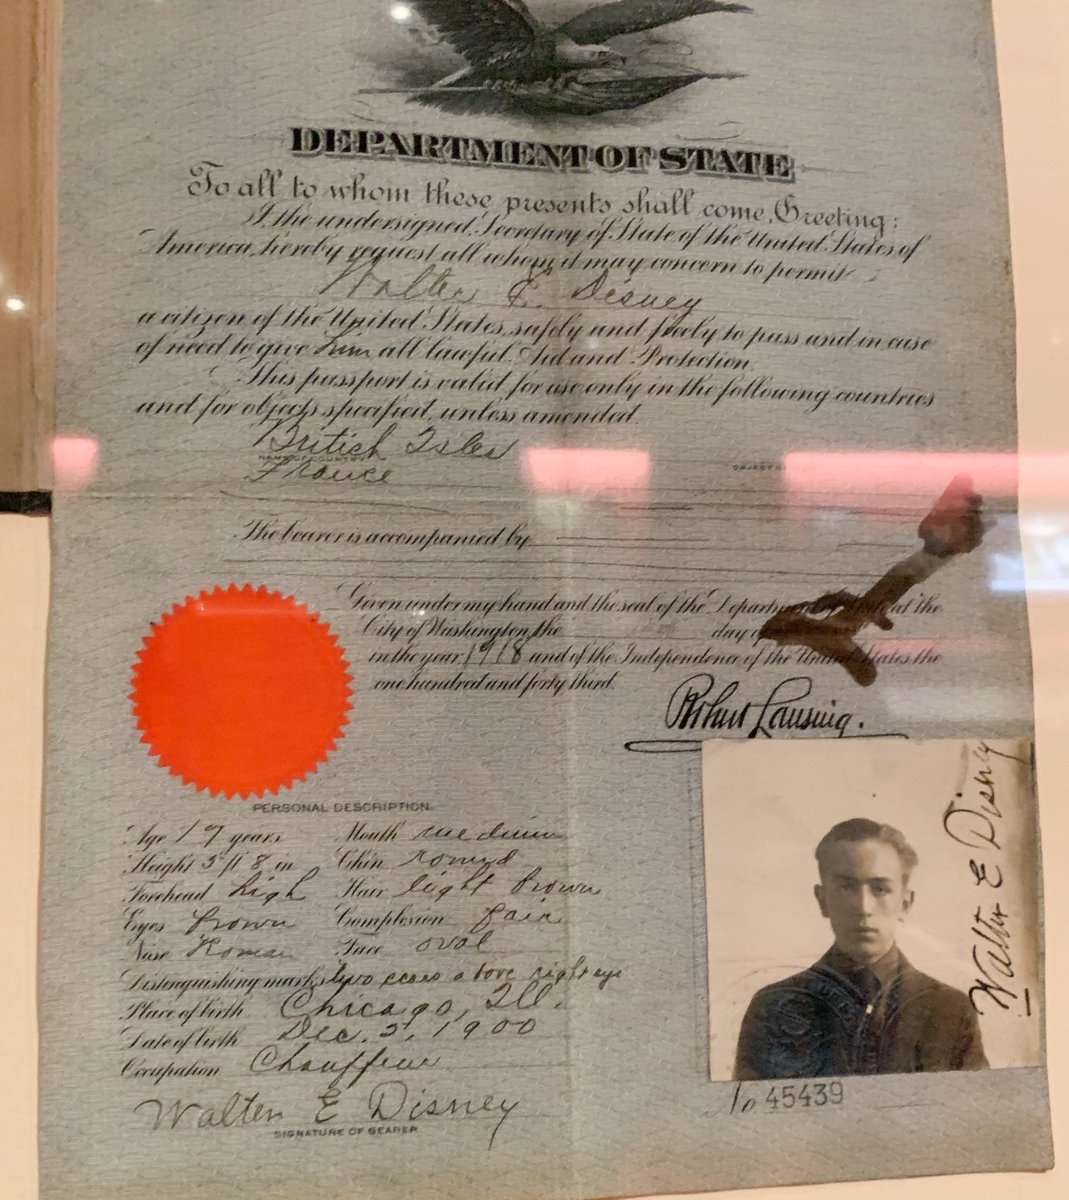 DEPARTMENT OF STATE
To all to whom these presents shall come, Greeting:
I, the undersigned, Secretary of State of the United States of
America, hereby request all whom it may concern to permit
Walter E. Disney
a citizen of the United States, safely and freely to pass and in case
of need to give him all lawful Aid and Protection.
This passport is valid for use only in the following countries
and for objects specified, unless amended.
British Isles
NAME OF COUNTRY OBJECT O
France
The bearer is accompanied by
Given under my hand and the seal of the Department of State at the
City of Washington, the day of
in the year 1918 and of the Independence of the United States the
one hundred and forty third.
Robert Lansing.
PERSONAL DESCRIPTION
Age 17 years Mouth medium
Height 5 ft 8 in Chin round
Forehead high Hair light brown
Eyes brown Complexion fair
Nose Roman Face oval
Distinguishing marks two scars above right eye
Place of birth Chicago, Ill.
Date of birth Dec. 5, 1900
Occupation Chauffeur
Walter E Disney
SIGNATURE OF BEARER
Walter E Disney
No 45439